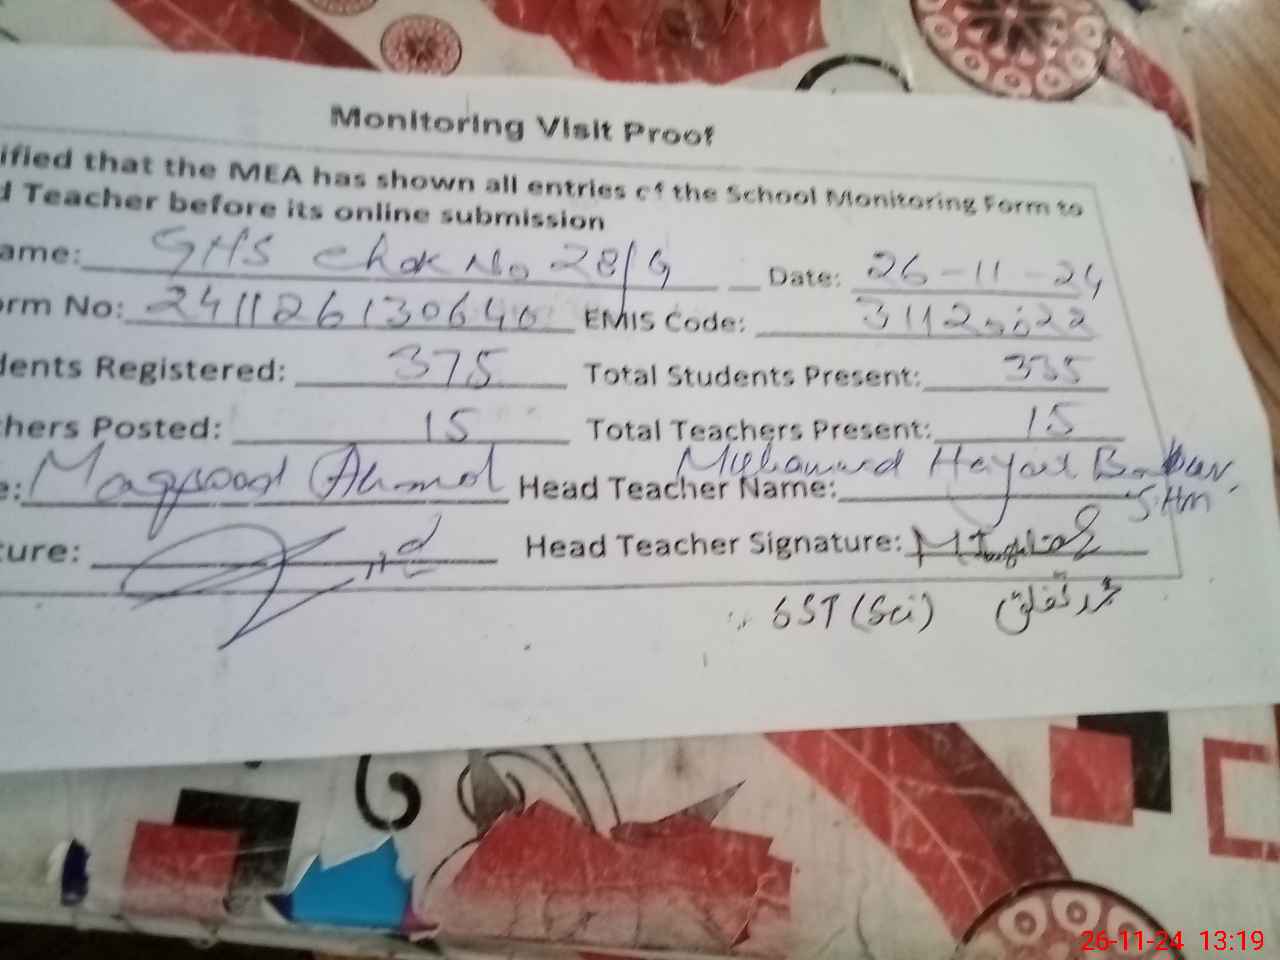 Monitoring Visit Proof
ified that the MEA has shown all entries of the School Monitoring Form to
d Teacher before its online submission
ame: GHS Chak No 28/G Date: 26-11-24
orm No: 241126130640 EMIS Code:
dents Registered: 375 Total Students Present: 335
hers Posted: 15 Total Teachers Present: 15
e: Maqsood Ahmad Head Teacher Name: Muhammad Hayat Babar
S.Hm
ture: Head Teacher Signature:
SST (Sci)
26-11-24 13:19